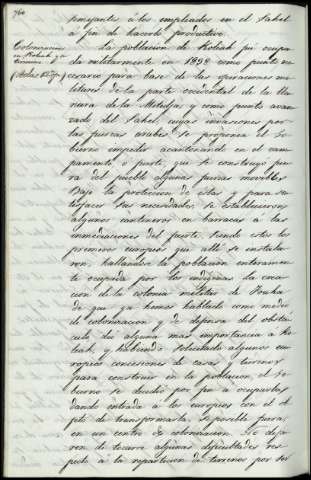 760
semejantes á los empleados en el Sahel
á fin de hacerlo productivo.
Colonizacion
en Koleah y su
termino
La poblacion de Koleah fue ocupa
da militarmente en 1838 como punto ne
cesario para base de las operaciones mi
litares de la parte occidental de la lla
nura de la Metidja y como punto avan
zado del Sahel, cuyas invasiones por
las fuerzas arabes se proponia el Go
bierno impedir acantonando en el cam
pamento ó fuerte que se construyó fue
ra del pueblo algunas fuerzas movibles
Bajo la proteccion de estas y para sa
tisfacer sus necesidades, se establecieron
algunos cantineros en barracas á las
inmediaciones del fuerte, siendo estos los
primeros europeos que alli se instala
ron, hallandose la poblacion enteramen
te ocupada por los indigenas. La crea
cion de la colonia militar de Fouka
de que ya hemos hablado como medio
de colonizacion y de defensa del obsta
culo dio alguna mas importancia á Ko
leah, y habiendo solicitado algunos eu
ropeos concesiones de casas y terrenos
para construir en la poblacion el Go
bierno se decidió por fin á ocuparla
dando entrada á los europeos con el ob
jeto de transformarla, si posible fuera,
en un centro de colonizacion. No deja
ron de ocurrir algunas dificultades res
pecto á la reparticion de terrenos por ser